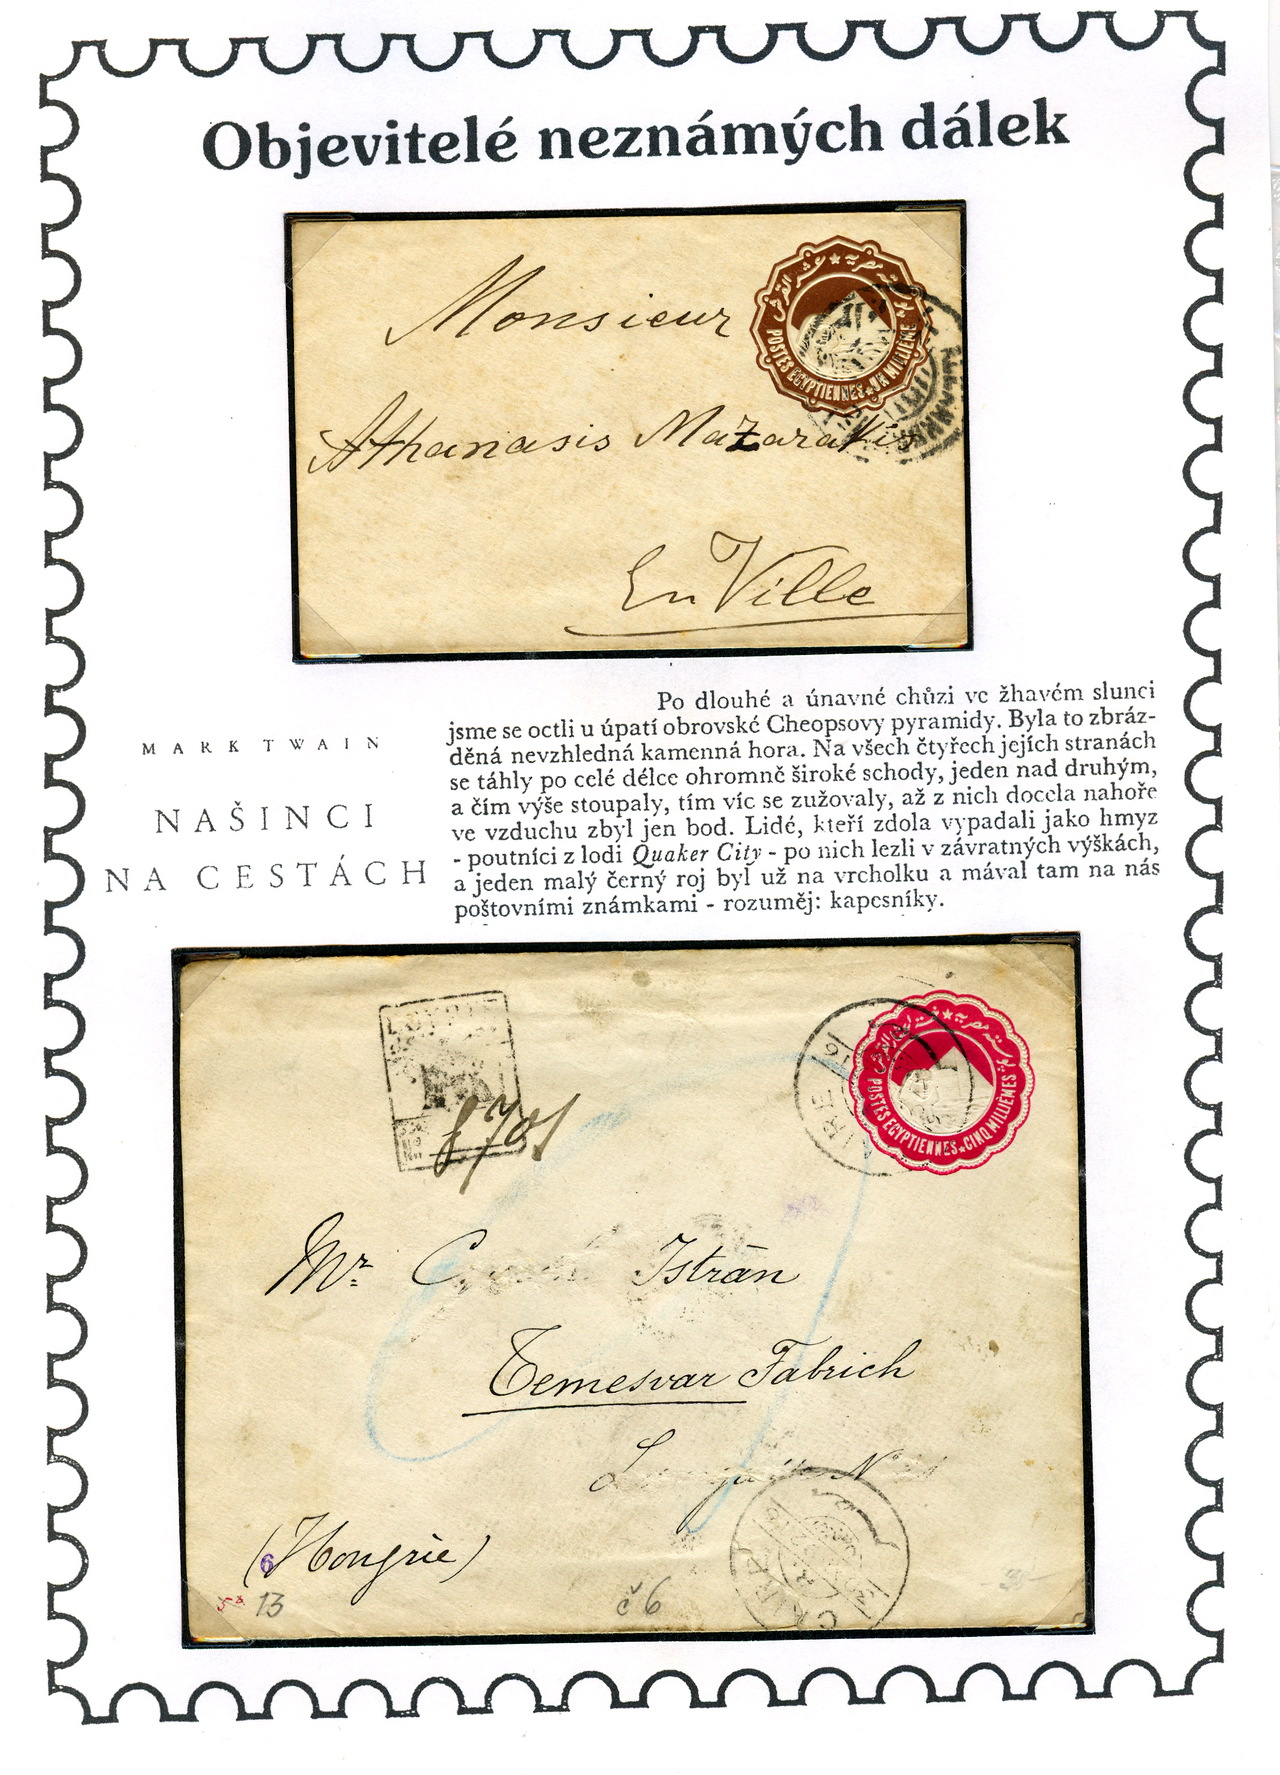 Objevitelé neznámých dálek
POSTES EGYPTIENNES ★ UN MILLIÈME
Monsieur
Athanasis Mazarakis
En Ville
MARK TWAIN
NAŠINCI
NA CESTÁCH
Po dlouhé a únavné chůzi ve žhavém slunci
jsme se octli u úpatí obrovské Cheopsovy pyramidy. Byla to zbráz-
děná nevzhledná kamenná hora. Na všech čtyřech jejích stranách
se táhly po celé délce ohromně široké schody, jeden nad druhým,
a čím výše stoupaly, tím víc se zužovaly, až z nich docela nahoře
ve vzduchu zbyl jen bod. Lidé, kteří zdola vypadali jako hmyz
- poutníci z lodi Quaker City - po nich lezli v závratných výškách,
a jeden malý černý roj byl už na vrcholku a mával tam na nás
poštovními známkami - rozuměj: kapesníky.
POSTES EGYPTIENNES ★ CINQ MILLIÈMES
Mr C Istrán
Temesvar Fabrich
(Hongrie)
6
13
č 6